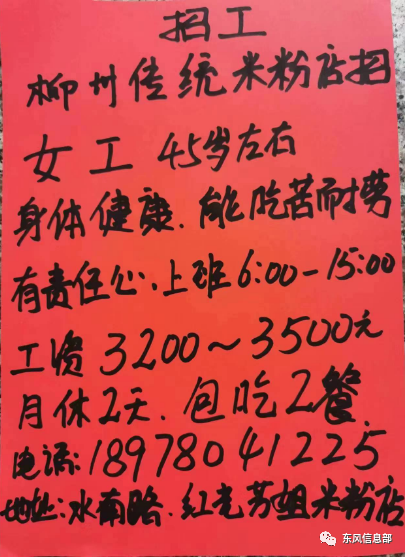 招工
柳州传统米粉店招
女工 45岁左右
身体健康.能吃苦而捞
有责任心.上班6:00-15:00
工资3200~3500元
月休2天.包吃2餐
电话:18978041225
地址:水南路.红光芳姐米粉店
东风信息部